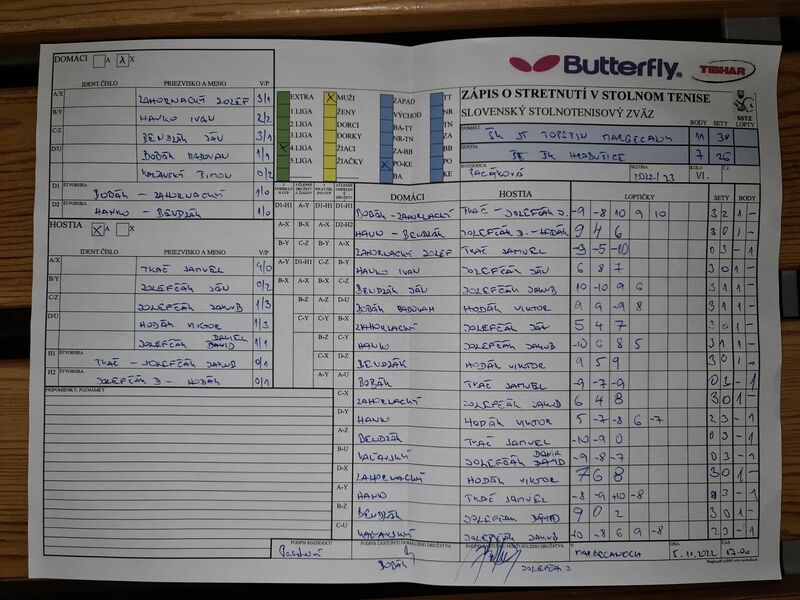 Butterfly
TIBHAR
DOMÁCI A X X
ZÁPIS O STRETNUTÍ V STOLNOM TENISE
SLOVENSKÝ STOLNOTENISOVÝ ZVÄZ
SSTZ
IDENT.ČÍSLO PRIEZVISKO A MENO V/P
A/X ZAHORNACKÝ JOZEF 3/1
B/Y HANKO IVAN 2/2
C/Z BENDZÁK JÁN 3/1
D/U BOBÁK RADOVAN 1/1
0/2
D1 ŠTVORHRA BOBÁK - ZAHORNACKÝ 1/0
D2 ŠTVORHRA HANKO - BENDZÁK 1/0
EXTRA
1.LIGA
2.LIGA
3.LIGA
X 4.LIGA
5.LIGA
X MUŽI
ŽENY
DORCI
DORKY
ŽIACI
ŽIAČKY
ZÁPAD
VÝCHOD
BA-TT
NR-TN
ZA-BB
X PO-KE
BA
TT
NR
TN
ZA
BB
PO
KE
BODY SETY LOPTY
DOMÁCI MARGECANY 11 38
HOSTIA 7 26
ROZHODCA SEZÓNA 2022/23 KOLO VI. Č.
HOSTIA X A X
IDENT.ČÍSLO PRIEZVISKO A MENO V/P
A/X TKÁČ SAMUEL 4/0
B/Y JOZEFČÁK JÁN 0/2
C/Z JOZEFČÁK JAKUB 1/3
D/U HODÁK VIKTOR 1/3
JOZEFČÁK DAVID 1/1
H1 ŠTVORHRA TKÁČ - JOZEFČÁK JAKUB 0/1
H2 ŠTVORHRA JOZEFČÁK D - HODÁK 0/1
PRIPOMIENKY, POZNÁMKY
DOMÁCI HOSTIA LOPTIČKY SETY BODY
D1-H1 BOBÁK - ZAHORNACKÝ TKÁČ - JOZEFČÁK J. -9 -8 10 9 10 3 2 1 -
D2-H2 HANKO - BENDZÁK JOZEFČÁK D. - HODÁK 9 4 6 3 0 1 -
A-X ZAHORNACKÝ JOZEF TKÁČ SAMUEL -3 -5 -10 0 3 - 1
B-Y HANKO IVAN JOZEFČÁK JÁN 6 8 7 3 0 1 -
C-Z BENDZÁK JÁN JOZEFČÁK JAKUB 10 -10 9 6 3 1 1 -
D-U BOBÁK RADOVAN HODÁK VIKTOR 9 9 -9 8 3 1 1 -
ZAHORNACKÝ JOZEFČÁK JÁN 5 4 7 3 0 1 -
HANKO JOZEFČÁK JAKUB -10 6 8 5 3 1 1 -
BENDZÁK HODÁK VIKTOR 9 5 9 3 0 1 -
BOBÁK TKÁČ SAMUEL -9 -7 -9 0 3 - 1
C-X ZAHORNACKÝ JOZEFČÁK JAKUB 6 4 8 3 0 1 -
D-Y HANKO HODÁK VIKTOR 5 -7 -8 6 -7 2 3 - 1
A-Z BENDZÁK TKÁČ SAMUEL -10 -9 0 0 3 - 1
B-U JOZEFČÁK DAVID -9 -8 -7 0 3 - 1
D-X ZAHORNACKÝ HODÁK VIKTOR 7 6 8 3 0 1 -
A-Y HANKO TKÁČ SAMUEL -8 -9 10 -8 1 3 - 1
B-Z BENDZÁK JOZEFČÁK DAVID 9 0 2 3 0 1 -
C-U JOZEFČÁK JAKUB -10 -8 6 9 -8 2 3 - 1
PODPIS ROZHODCU PODPIS ZÁSTUPCU DOMÁCEHO DRUŽSTVA PODPIS ZÁSTUPCU HOSŤUJÚCEHO DRUŽSTVA
V MARGECANOCH DŇA 5.11.2022 ČAS 17.00
BOBÁK
JOZEFČÁK J.